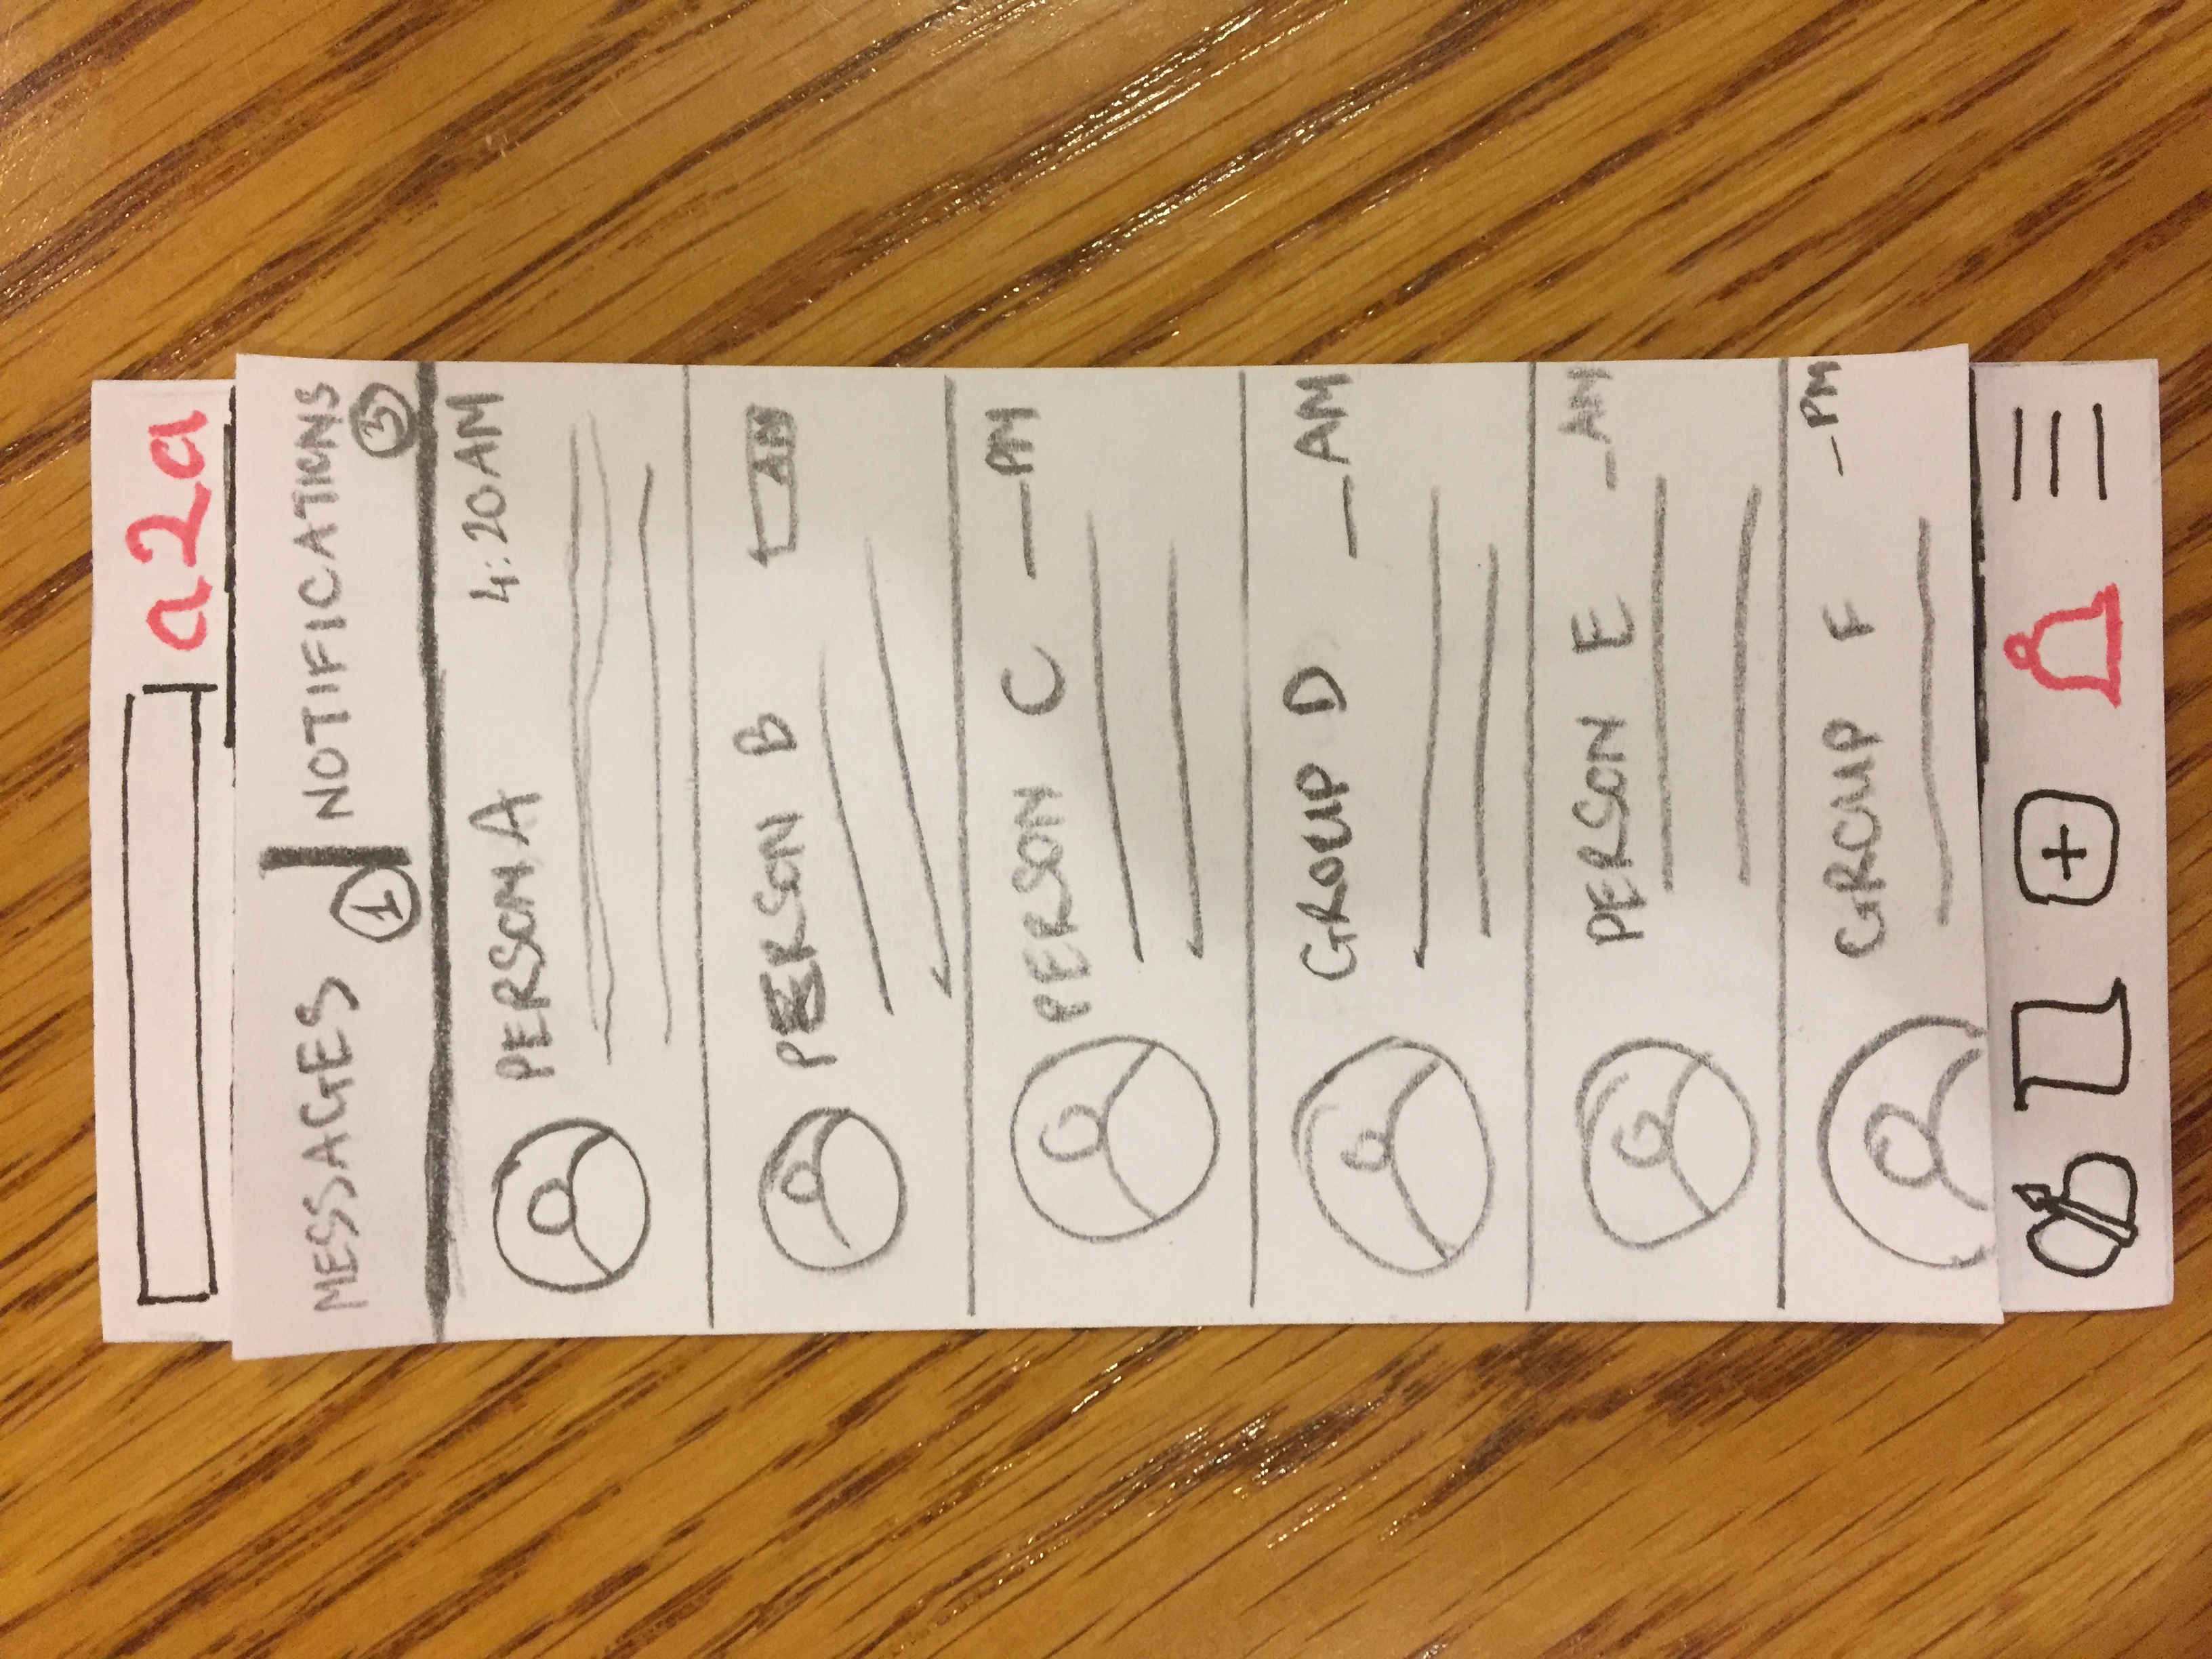 a2a
MESSAGES 1 NOTIFICATIONS 3
PERSON A 4:20AM
PERSON B AM
PERSON C PM
GROUP D AM
PERSON E AM
GROUP F PM